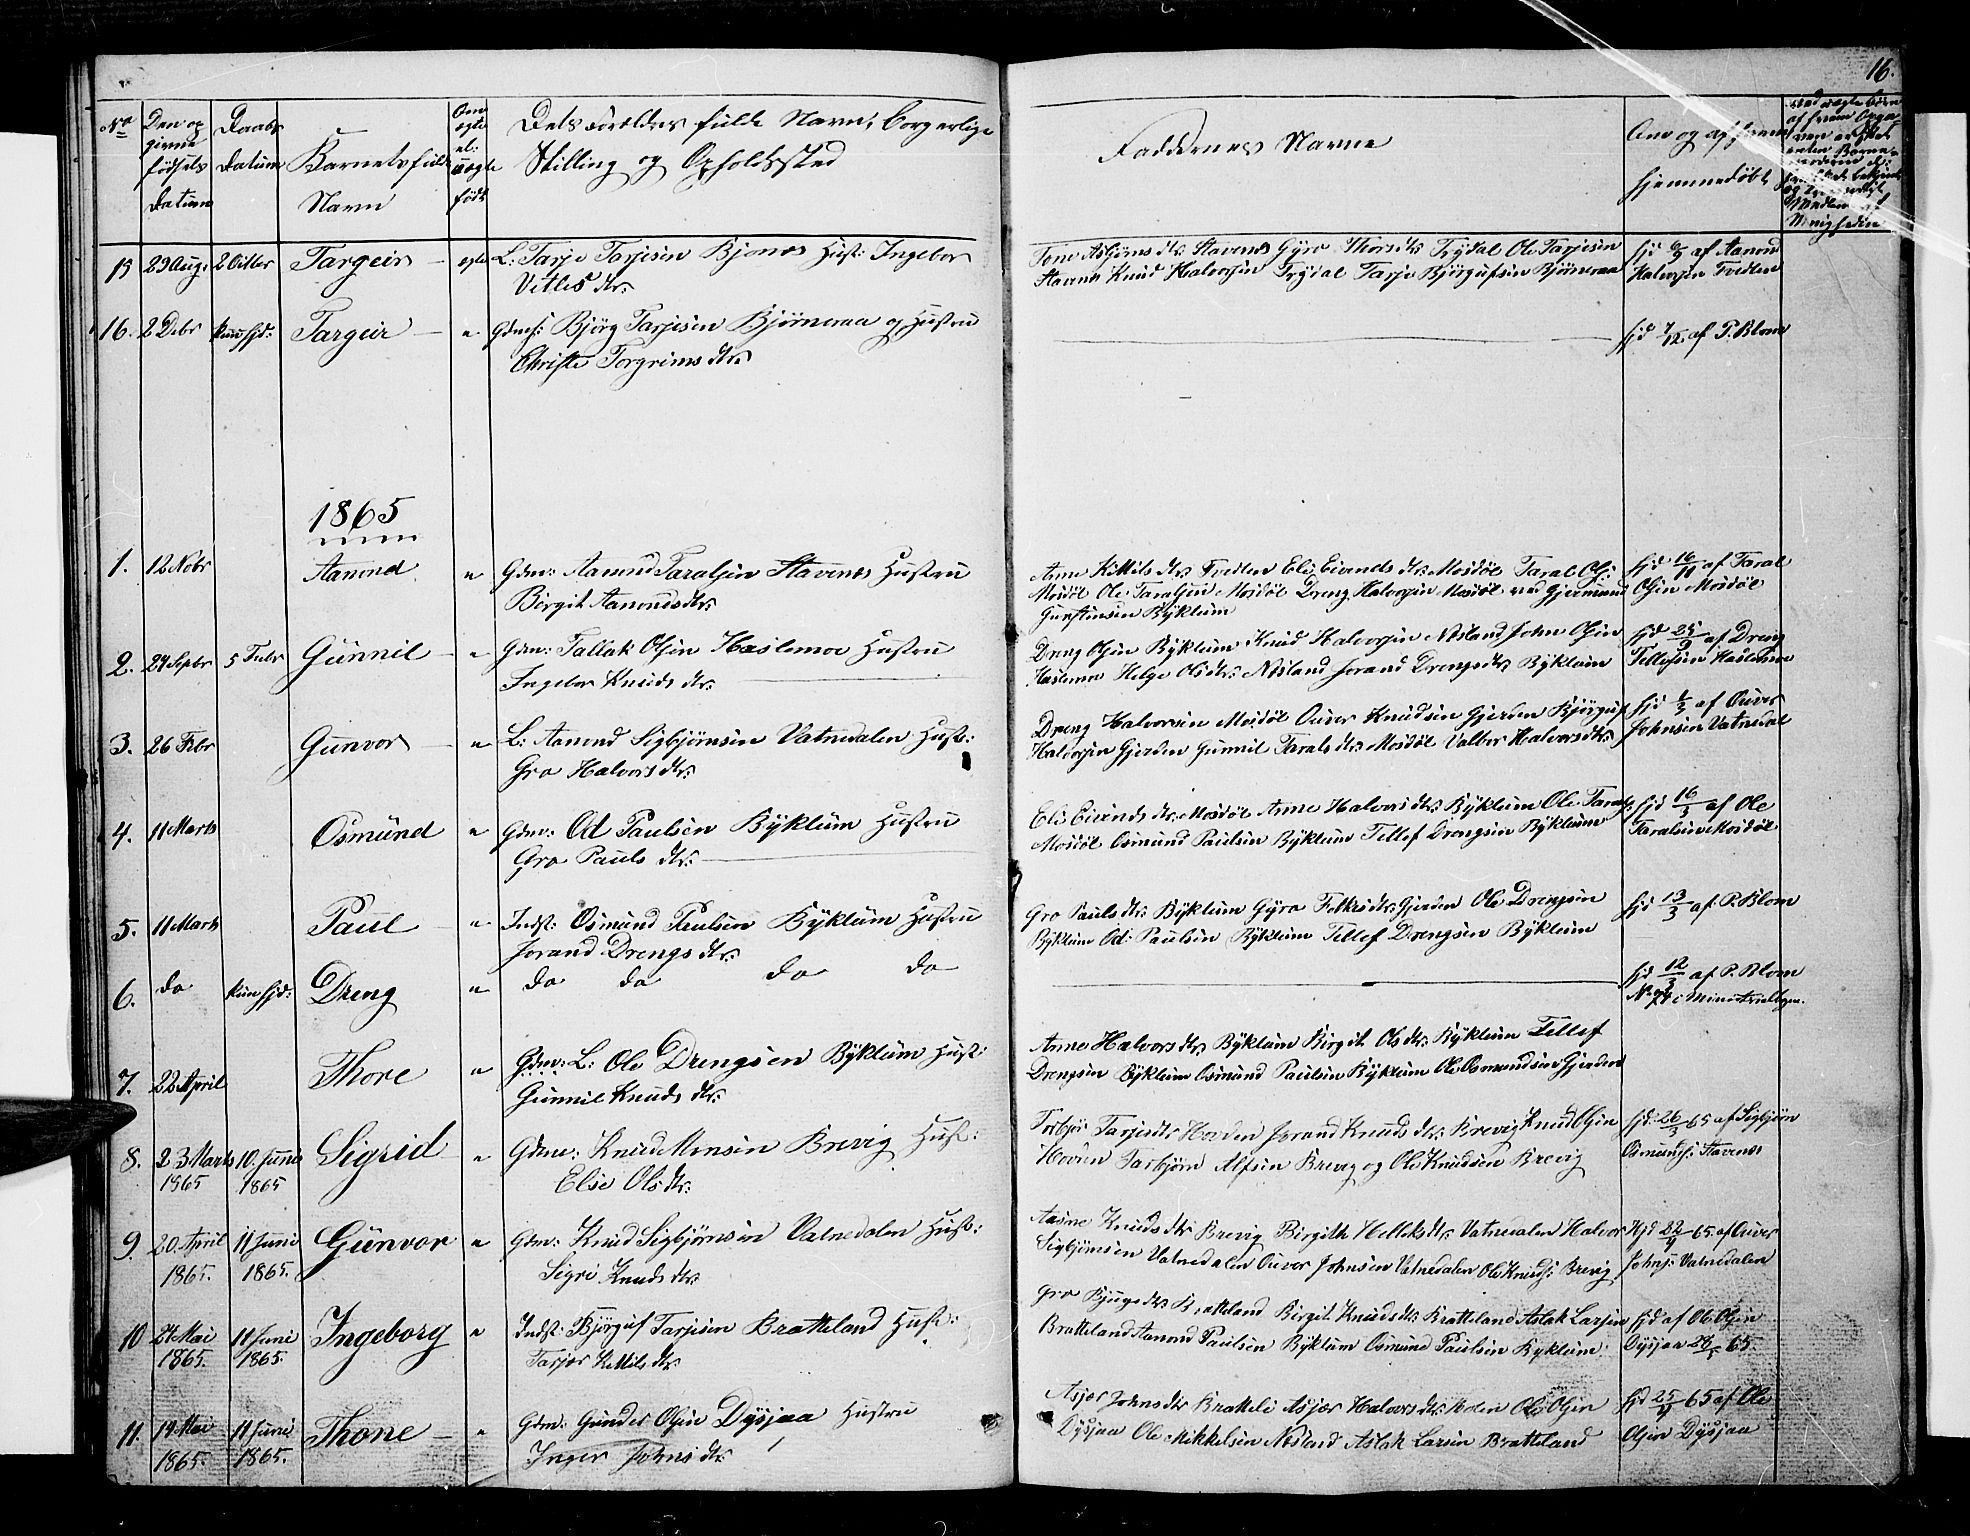 16.
No
Den op
givne
fødsels
datum
Daabs
datum
Barnets fulde
Navn
Om
egte
el:
uegte
født
Dets Foreldres fulde Navn, borgerlige
Stilling og Opholdssted
Faddernes Navne
Om og af hvem
hjemmedøbt
15 29 Aug: 2 Octbr Targeir egte L: Tarje Tarjesen Bjønes Hust: Ingebor
Vetles dtr:
Tone Asbjørns dtr: Stavenes Gyro Thors dtr Trydal Ole Tarjesen
Stavenes Knud Halvorsen Trydal Tarje Bjørgufsen Bjørneraa
hjd af Aanond
Halvorsen Tveden
16. 2 Debr kun hjd: Targeir " Gdms: Bjørg Tarjesen Bjørneraa og Hustru
Christe Torgrims dtr:
hjd 7/12 af P. Blom
1865
1. 12 Nobr Aanond " Gdm: Aamund Taralsen Stavenes Hustru
Birgit Aanonds dtr:
Anne Kittils dtr: Tvedten Eli Eivends dtr: Mosdøl Taral Ols:
Mosdøl Ole Taralsen Mosdøl Dreng Halvorsen Mosdøl ved Gjermund
Gunsteinsen Byklum
hjd 16/11 af Taral
Olsen Mosdøl
2. 24 Sepbr 5 Febr Gunnil " Gdm: Tallak Olsen Haslemoe Hustru
Ingebor Knuds dtr:
Dreng Olsen Byklum Knud Halvorsen Nesland John Olsen
Haslemo Helge Ols dtr: Nesland Jorand Drengs dtr: Byklum
hjd 25/9 af Dreng
Tellefsen Haslemoe
3. 26 Febr Gunvor " L: Aanond Sigbjørnsen Vatnedalen Hust:
Gro Halvors dtr:
Dreng Halvorsen Mosdøl Ouver Knudsen Gjerden Bjørguf
Halvorsen Gjerden Gunnil Tarals dtr: Mosdøl Valbor Halvors dtr:
hjd 1/3 af Ouver
Johnsen Vatnedal
4. 11 Marts Osmund " Gdm: Od Paulsen Byklum Hustru
Gro Pauls dtr:
Eli Eivends dtr: Mosdøl Anne Halvors dtr: Byklum Ole Tarals:
Mosdøl Osmund Paulsen Byklum Tellef Drengsen Byklum
hjd 16/3 af Ole
Taralsen Mosdøl
5. 11 Marts Paul " Indst: Osmund Paulsen Byklum Hustru
Jorand Drengs dtr:
Gro Pauls dtr: Byklum Gyro Folkes dtr: Gjerden Ole Drengsen
Byklum Od: Paulsen Byklum Tellef Drengsen Byklum
hjd 13/3 af P. Blom
6. do kun hjd: Dreng " do do do do
hjd 12/3 af P. Blom
7. 22 April Thore " Gdm: L: Ole Drengsen Byklum Hust:
Gunnil Knuds dtr:
Anne Halvors dtr: Byklum Birgit Ols dtr: Byklum Tellef
Drengsen Byklum Osmund Paulsen Byklum Ole Osmundsen Gjerden
8. 23 Marts
1865
10. Juni
1865
Sigrid " Gdm: Knud Monsen Brevig Hust:
Else Ols dtr:
Torbjør Tarjes dtr Hovden Jorand Knuds dtr: Brevig Knud Olsen
Hovden Tarbjørn Alfsen Brevig og Ole Knudsen Brevig
hjd: 26/3 65 af Sigbjørn
Osmunds: Stavenes
9. 20 April
1865.
11 Juni
1865.
Gunvor " Gdm: Knud Sigbjørnsen Vatnedalen Hust:
Sigri Knuds dtr
Aasne Knuds dtr Brevig Birgith Helleks dtr: Vatnedalen Halvor
Sigbjørnsen Vatnedalen Ouver Johnsen Vatnedalen Ole Knuds: Brevig
Hjd 22/4 65. af Ouver
Johns: Vatnedalen
10 24 Mai
1865.
11 Juni
1865.
Ingeborg " Indst: Bjørguf Tarjesen Bratteland Hust:
Tarjer Kittils dtr:
Gro Bjugs dtr: Bratteland Birgit Knuds dtr: Bratteland Aslak Larsen
Bratteland Aanond Paulsen Byklum Osmund Paulsen Byklum
hjd af Ol. Olsen
Dysjaa 28/5 65.
11. 19 Mai
1865.
11 Juni
1865.
Thone " Gdm: Gunder Olsen Dysjaa Hustru
Inger Johns dtr:
Asjær Johns dtr Bratteli Asjær Halvors dtr: Hoslen Ole Olsen
Dysjaa Ole Mikkelsen Nesland Aslak Larsen Bratteland
hjd 25 65 af Ole
Olsen Dysjaa